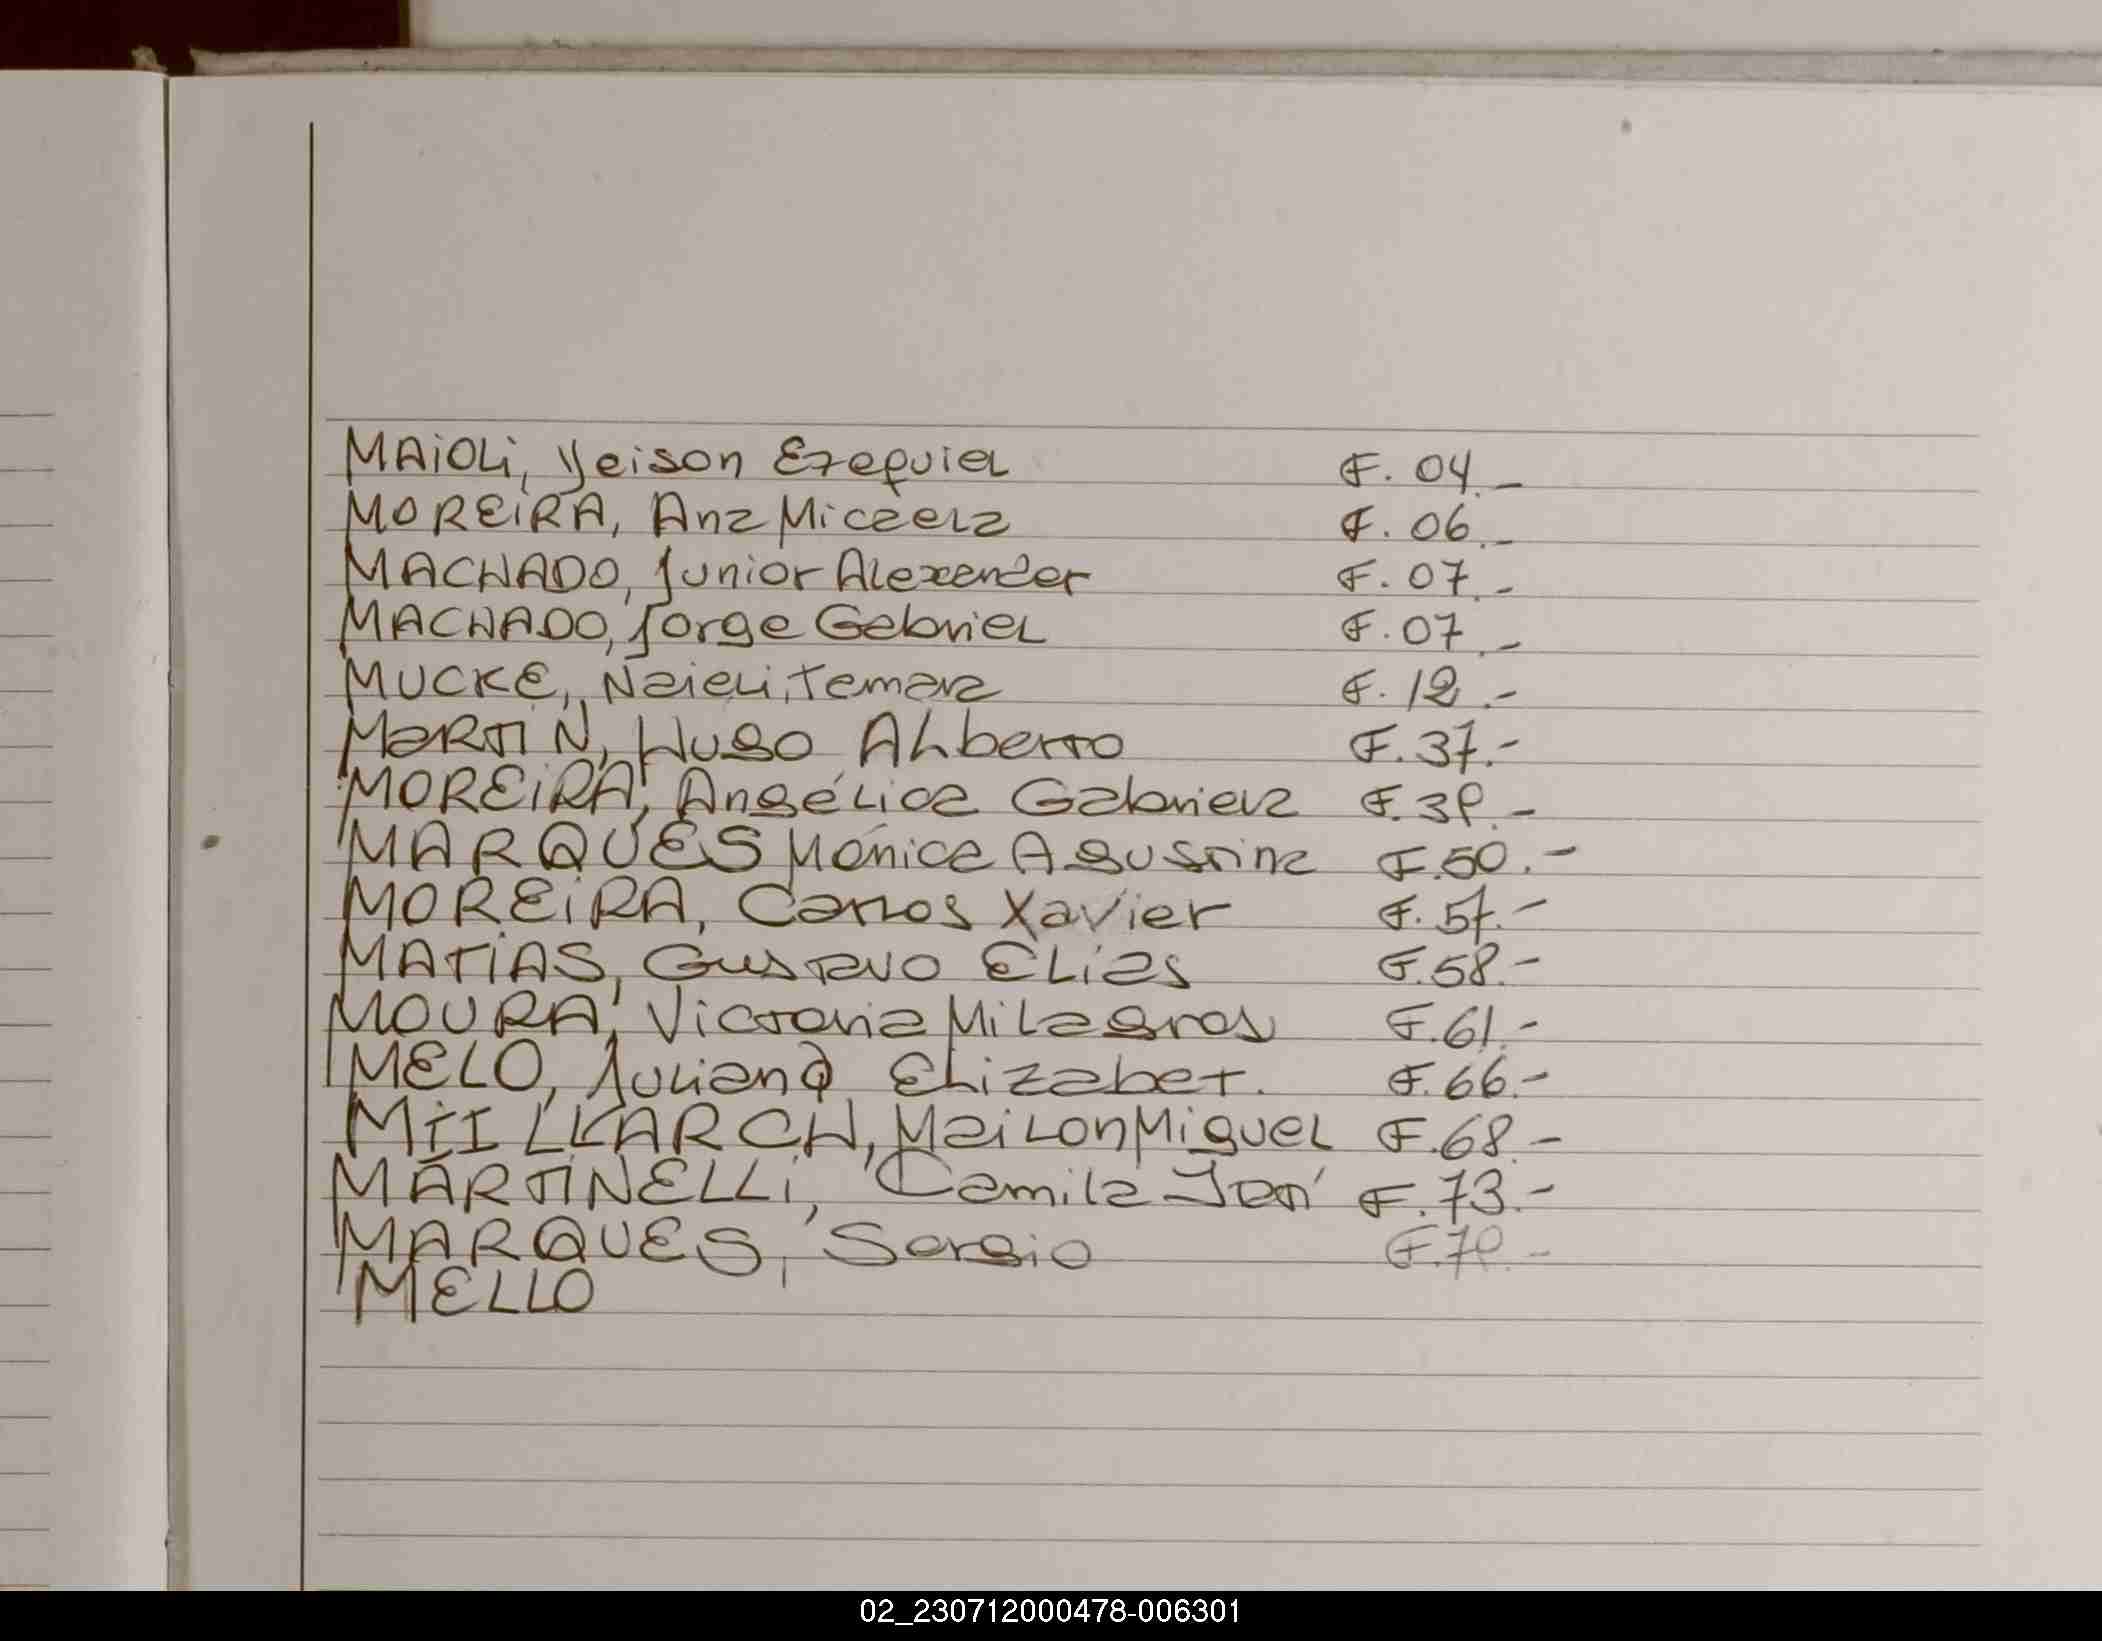 MAiOLi, Yeison Ezequiel F. 04.-
MOREiRA, Ana Micaela F. 06.-
MACHADO, Junior Alexander F. 07.-
MACHADO, Jorge Gabriel F. 07.-
MUCKE, Naieli, Tamara F. 12.-
MaRTiN, Hugo ALberto F. 37.-
MOREiRA, Angélica Gabriela F. 39.-
MARQUES Mónica Agustina F. 50.-
MOREiRA, Carlos Xavier F. 57.-
MATiAS, Gustavo ELias F. 58.-
MOURA, Victoria Milagros F. 61.-
MELO, Juliana Elizabet. F. 66.-
MaiLon Miguel F. 68.-
MARTiNELLi, Camila F. 73.-
MARQUES, Sergio F. 79.-
MELLO
02_230712000478-006301